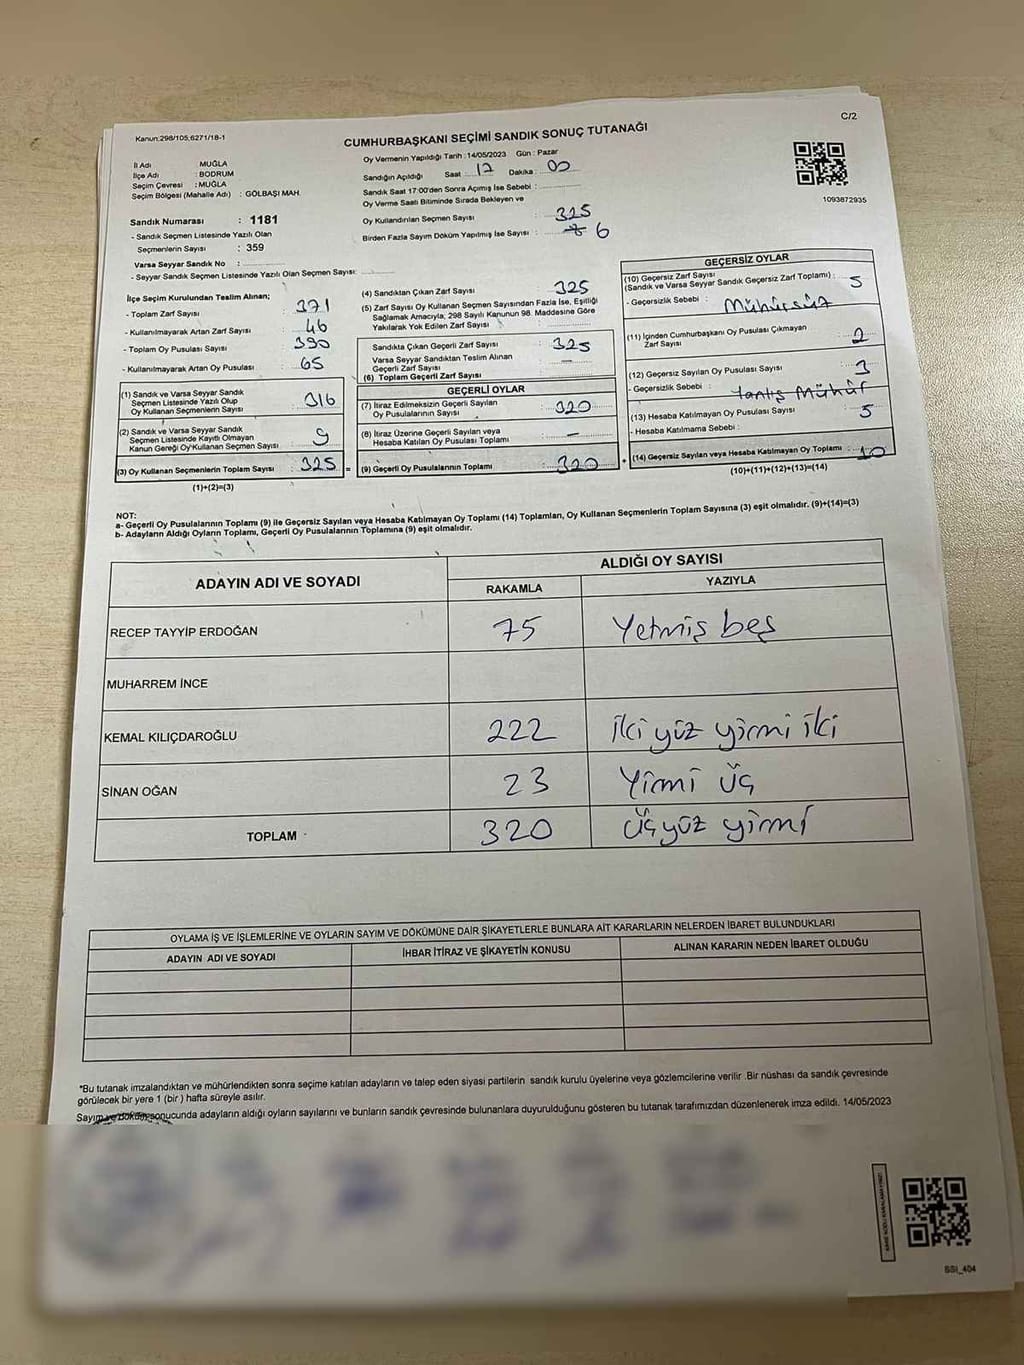 Kanun:298/105,6271/18-1
C/2
CUMHURBAŞKANI SEÇİMİ SANDIK SONUÇ TUTANAĞI
İl Adı : MUĞLA
İlçe Adı : BODRUM
Seçim Çevresi : MUĞLA
Seçim Bölgesi (Mahalle Adı) : GÖLBAŞI MAH.
Sandık Numarası : 1181
- Sandık Seçmen Listesinde Yazılı Olan
Seçmenlerin Sayısı : 359
Varsa Seyyar Sandık No :
- Seyyar Sandık Seçmen Listesinde Yazılı Olan Seçmen Sayısı:
Oy Vermenin Yapıldığı Tarih :14/05/2023 Gün : Pazar
Sandığın Açıldığı Saat : 17 Dakika : 00
Sandık Saat 17:00'den Sonra Açımış İse Sebebi :
Oy Verme Saati Bitiminde Sırada Bekleyen ve
Oy Kullandırılan Seçmen Sayısı : 325
Birden Fazla Sayım Döküm Yapılmış İse Sayısı : 6
1093872935
İlçe Seçim Kurulundan Teslim Alınan;
- Toplam Zarf Sayısı : 371
- Kullanılmayarak Artan Zarf Sayısı : 46
- Toplam Oy Pusulası Sayısı : 390
- Kullanılmayarak Artan Oy Pusulası : 65
(1) Sandık ve Varsa Seyyar Sandık
Seçmen Listesinde Yazılı Olup
Oy Kullanan Seçmenlerin Sayısı : 316
(2) Sandık ve Varsa Seyyar Sandık
Seçmen Listesinde Kayıtlı Olmayan
Kanun Gereği Oy Kullanan Seçmen Sayısı : 9
(3) Oy Kullanan Seçmenlerin Toplam Sayısı : 325 =
(1)+(2)=(3)
(4) Sandıktan Çıkan Zarf Sayısı : 325
(5) Zarf Sayısı Oy Kullanan Seçmen Sayısından Fazla İse, Eşitliği
Sağlamak Amacıyla, 298 Sayılı Kanunun 98. Maddesine Göre
Yakılarak Yok Edilen Zarf Sayısı :
Sandıkta Çıkan Geçerli Zarf Sayısı : 325
Varsa Seyyar Sandıktan Teslim Alınan
Geçerli Zarf Sayısı : —
(6) Toplam Geçerli Zarf Sayısı
GEÇERLİ OYLAR
(7) İtiraz Edilmeksizin Geçerli Sayılan
Oy Pusulalarının Sayısı : 320
(8) İtiraz Üzerine Geçerli Sayılan veya
Hesaba Katılan Oy Pusulası Toplamı : —
(9) Geçerli Oy Pusulalarının Toplamı : 320 +
GEÇERSİZ OYLAR
(10) Geçersiz Zarf Sayısı
(Sandık ve Varsa Seyyar Sandık Geçersiz Zarf Toplamı) : 5
- Geçersizlik Sebebi : Mühürsüz
(11) İçinden Cumhurbaşkanı Oy Pusulası Çıkmayan
Zarf Sayısı : 2
(12) Geçersiz Sayılan Oy Pusulası Sayısı : 3
- Geçersizlik Sebebi : Yanlış Mühür
(13) Hesaba Katılmayan Oy Pusulası Sayısı : 5
- Hesaba Katılmama Sebebi :
(14) Geçersiz Sayılan veya Hesaba Katılmayan Oy Toplamı : 10
(10)+(11)+(12)+(13)=(14)
NOT:
a- Geçerli Oy Pusulalarının Toplamı (9) ile Geçersiz Sayılan veya Hesaba Katılmayan Oy Toplamı (14) Toplamları, Oy Kullanan Seçmenlerin Toplam Sayısına (3) eşit olmalıdır. (9)+(14)=(3)
b- Adayların Aldığı Oyların Toplamı, Geçerli Oy Pusulalarının Toplamına (9) eşit olmalıdır.
ADAYIN ADI VE SOYADI
ALDIĞI OY SAYISI
RAKAMLA YAZIYLA
RECEP TAYYİP ERDOĞAN 75 Yetmiş beş
MUHARREM İNCE
KEMAL KILIÇDAROĞLU 222 İki yüz yirmi iki
SİNAN OĞAN 23 Yirmi üç
TOPLAM 320 üçyüz yirmi
OYLAMA İŞ VE İŞLEMLERİNE VE OYLARIN SAYIM VE DÖKÜMÜNE DAİR ŞİKAYETLERLE BUNLARA AİT KARARLARIN NELERDEN İBARET BULUNDUKLARI
ADAYIN ADI VE SOYADI İHBAR İTİRAZ VE ŞİKAYETİN KONUSU ALINAN KARARIN NEDEN İBARET OLDUĞU
*Bu tutanak imzalandıktan ve mühürlendikten sonra seçime katılan adayların ve talep eden siyasi partilerin sandık kurulu üyelerine veya gözlemcilerine verilir .Bir nüshası da sandık çevresinde
görülecek bir yere 1 (bir) hafta süreyle asılır.
Sayım ve döküm sonucunda adayların aldığı oyların sayılarını ve bunların sandık çevresinde bulunanlara duyurulduğunu gösteren bu tutanak tarafımızdan düzenlenerek imza edildi. 14/05/2023
SSI_404